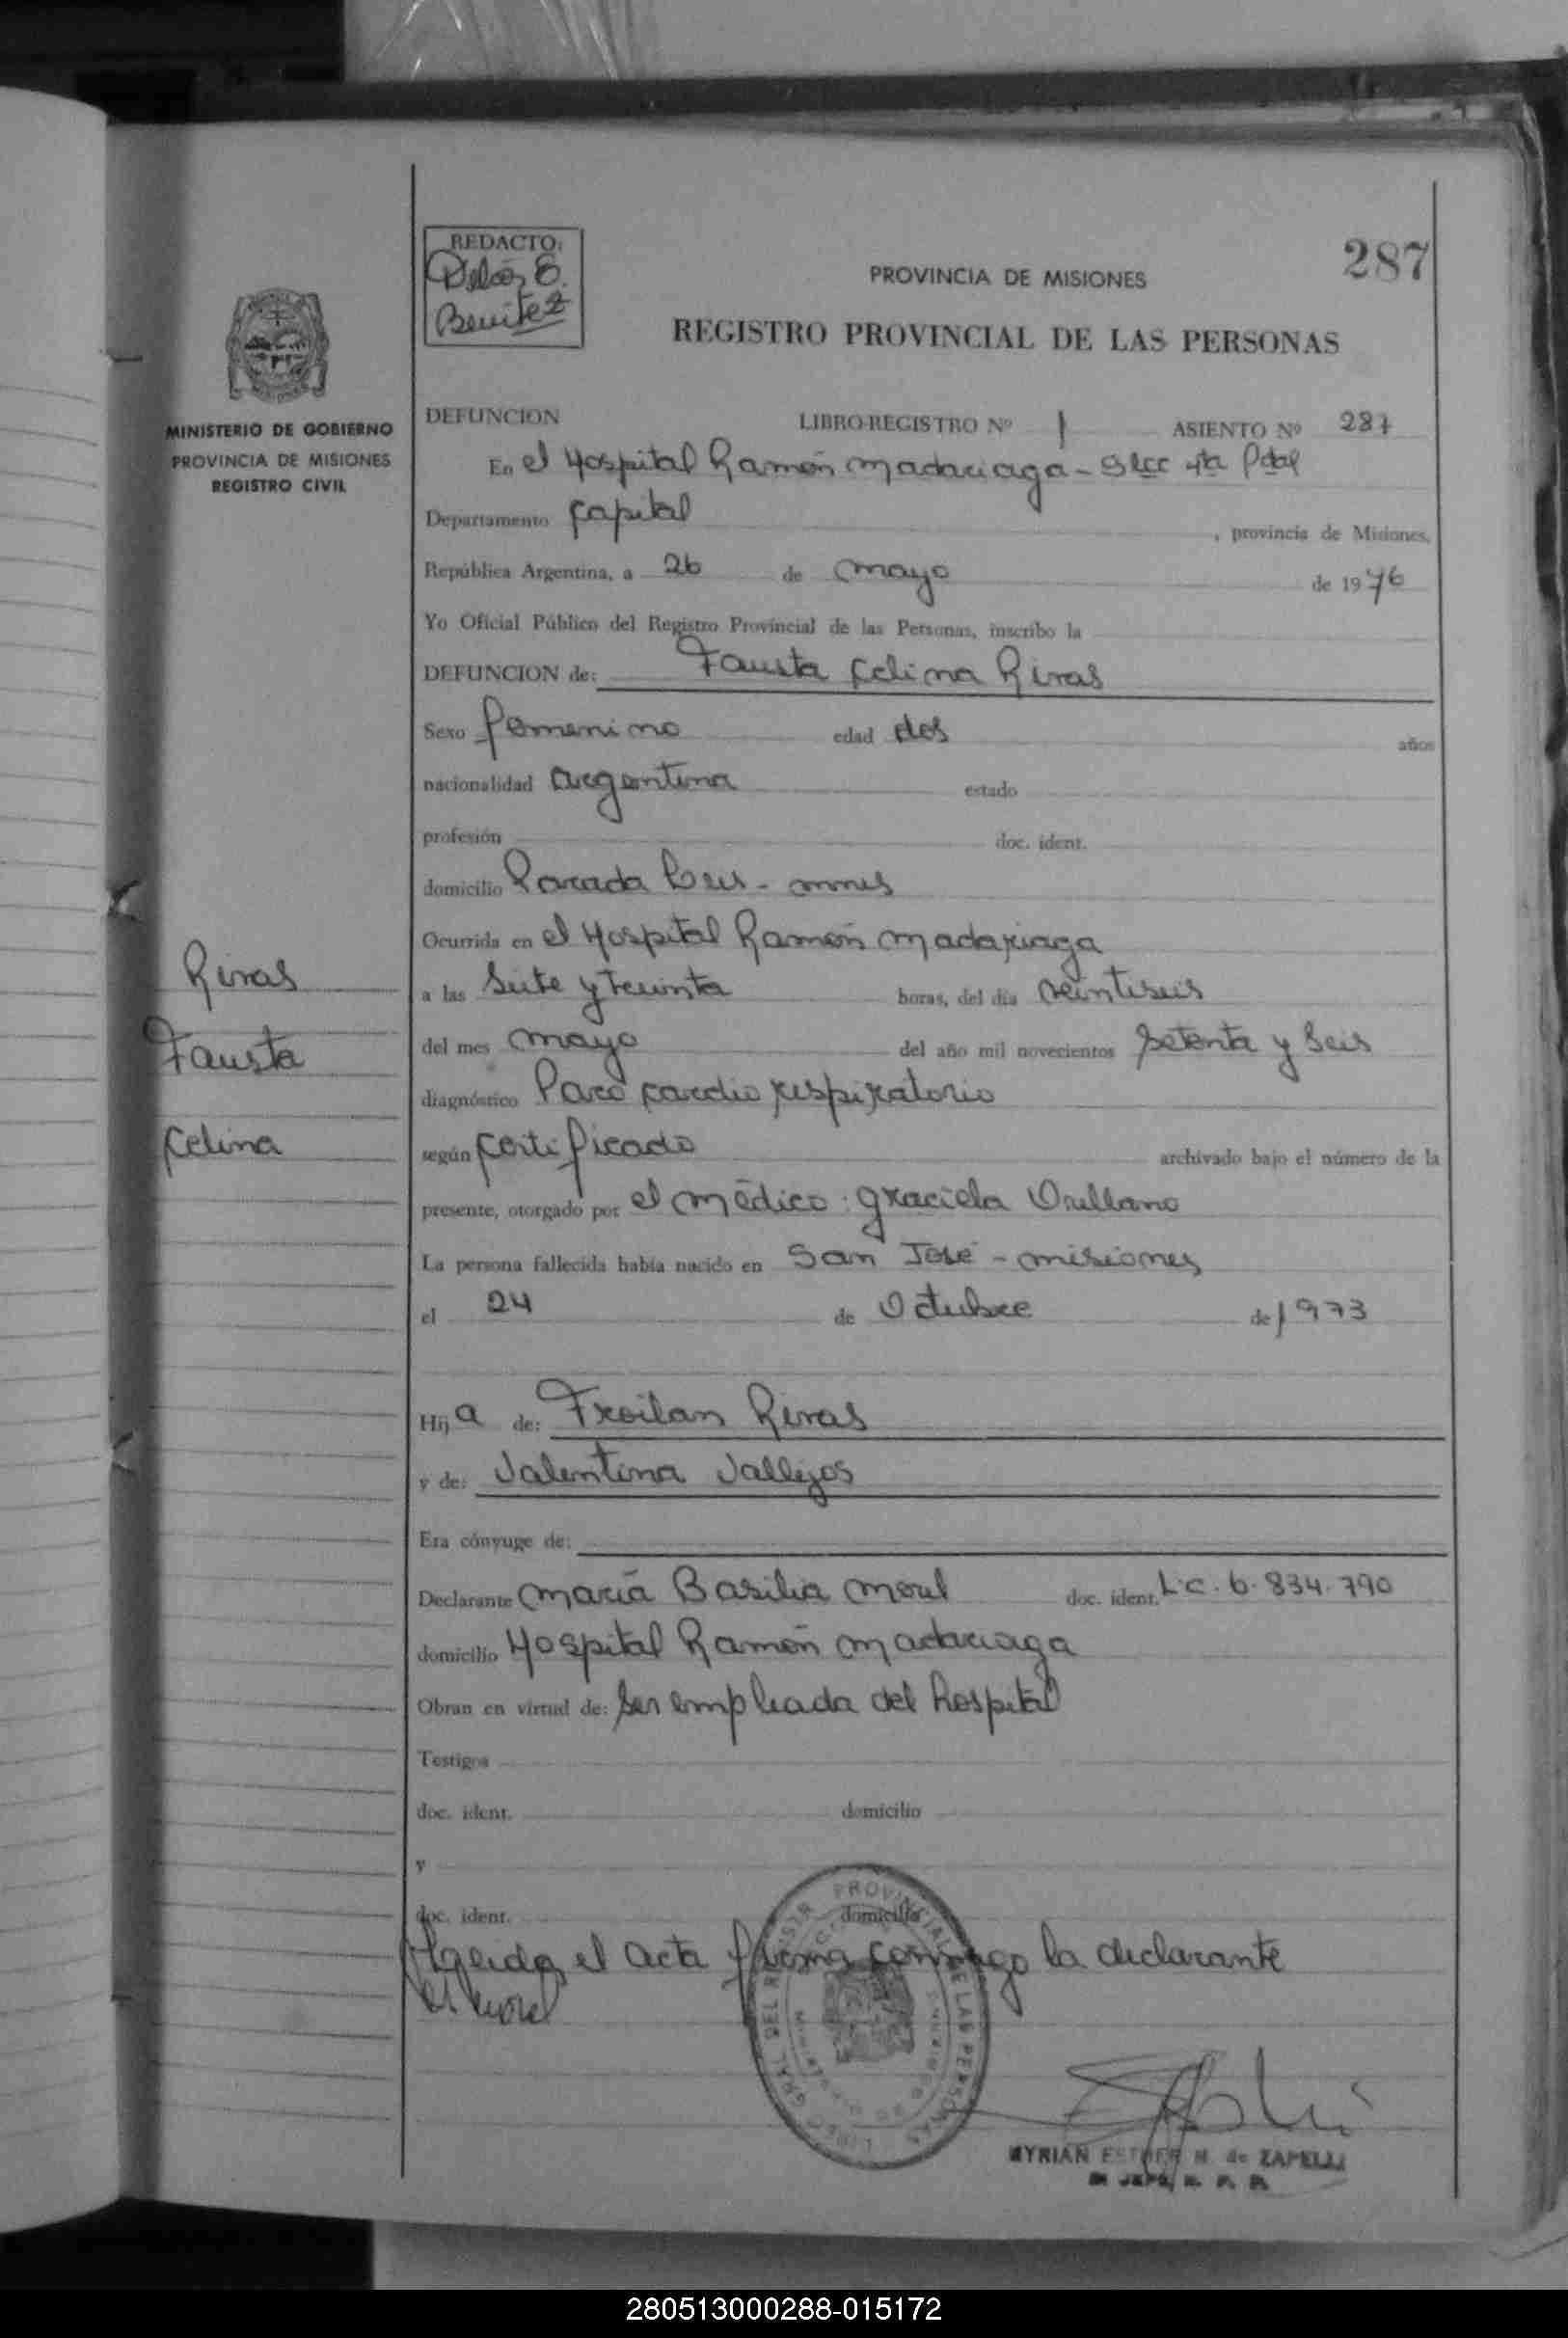 REDACTO:
Delcis E.
Benitez
287
PROVINCIA DE MISIONES
REGISTRO PROVINCIAL DE LAS PERSONAS
MINISTERIO DE GOBIERNO
PROVINCIA DE MISIONES
REGISTRO CIVIL
DEFUNCION LIBRO-REGISTRO Nº 1 ASIENTO Nº 287
En el Hospital Ramón Madariaga - Secc 4ta Pdal
Departamento Capital, provincia de Misiones,
República Argentina, a 26 de mayo de 1976
Yo Oficial Público del Registro Provincial de las Personas, inscribo la
DEFUNCION de: Fausta Celina Rivas
Sexo femenino edad dos años
nacionalidad argentina estado
profesión doc. ident.
domicilio Parada Leis - mnes
Ocurrida en el Hospital Ramón Madariaga
a las siete y treinta horas, del día veintiseis
del mes mayo del año mil novecientos setenta y seis
diagnóstico Paro cardio respiratorio
según certificado archivado bajo el número de la
presente, otorgado por el médico: Graciela Orellano
La persona fallecida había nacido en San José - misiones
el 24 de Octubre de 1973
Hija de: Froilan Rivas
y de: Valentina Vallejos
Era cónyuge de:
Declarante María Basilia Morel doc. ident. L.C. 6.834.790
domicilio Hospital Ramón Madariaga
Obran en virtud de: ser empleada del hospital
Testigos
doc. ident. domicilio
y
doc. ident. domicilio
Leida el acta firma conmigo la declarante
Rivas
Fausta
Celina
MYRIAN ESTHER M. de ZAPELLI
280513000288-015172